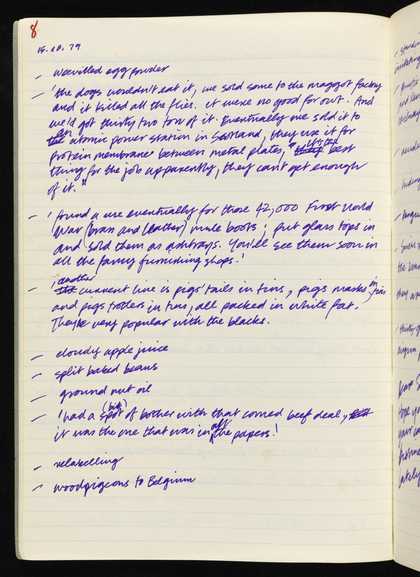 8
15.10.79
- weevilled egg powder
- 'the dogs wouldn't eat it, we sold some to the maggot factory
and it killed all the flies. It were no good for owt. And
we'd got thirty two ton of it. Eventually we sold it to
an atomic power station in Scotland, they use it for
protein membrane between metal plates, "it's the best
thing for the job apparently, they can't get enough
of it."
- 'found a use eventually for those 42,000 First World
War (brass and leather) mule boots; put glass tops in
and sold them as ashtrays. You'll see them soon in
all the fancy furnishing shops.'
- 'another current line is pigs' tails in tins, pigs masks in tins
and pigs trotters in tins, all packed in white fat.
They're very popular with the blacks.
- cloudy apple juice
- split baked beans
- ground nut oil
- 'had a spot (bit) of bother with that corned beef deal,
it was the one that was in all the papers!'
- relabelling
- woodpigeons to Belgium